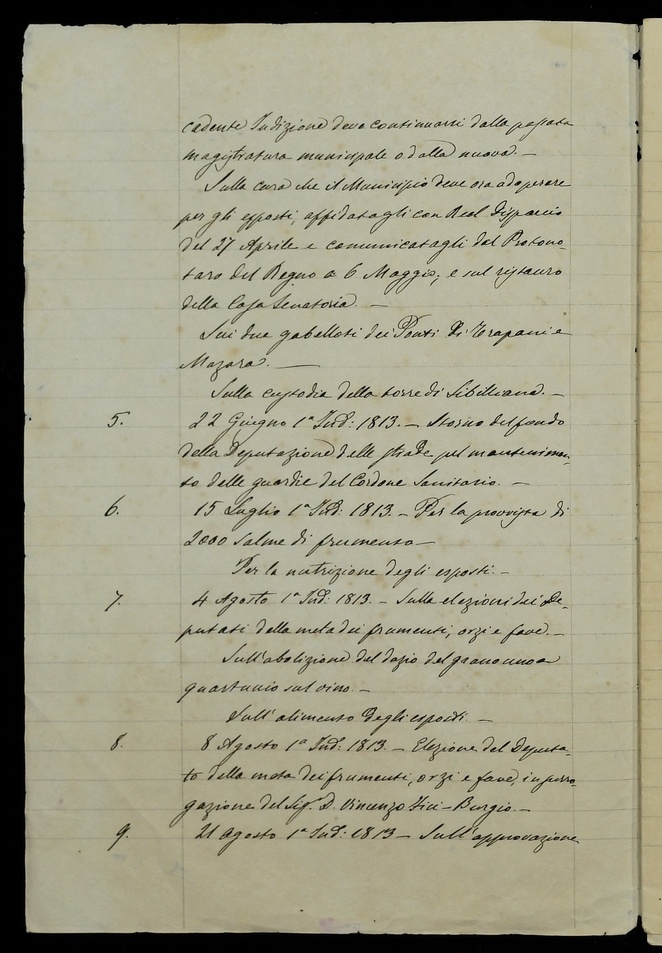 cadente Indizione deve continuarsi dalla passata
magistratura municipale o dalla nuova. —
Sulla cura che il Municipio deve ora adoperare
per gli esposti, affidatagli con Real Dispaccio
del 27 Aprile e comunicatagli dal Protono-
taro del Regno a 6 Maggio; e sul ristauro
della Casa Senatoria. —
Sui due gabelloti dei Ponti di Trapani e
Mazara. —
Sulla custodia della torre di Sibilliana. —
5. 22 Giugno 1ª Ind: 1813. — Storno del fondo
della Deputazione delle strade pel mantenimen-
to delle guardie del Cordone Sanitario. —
6. 15 Luglio 1ª Ind: 1813. — Per la provvista di
2000 salme di frumento —
Per la nutrizione degli esposti. —
7. 4 Agosto 1ª Ind: 1813. — Sulla elezioni dei De-
putati della meta dei frumenti, orzi e fave. —
Sull'abolizione del dazio del grano uno a
quartuccio sul vino. —
Sull'alimento degli esposti. —
8. 8 Agosto 1ª Ind: 1813. — Elezione del Deputa-
to della meta dei frumenti, orzi e fave, in
gazione del Sig.r D. Vincenzo Burgio. —
9. 21 Agosto 1ª Ind: 1813 — Sull'approvazione